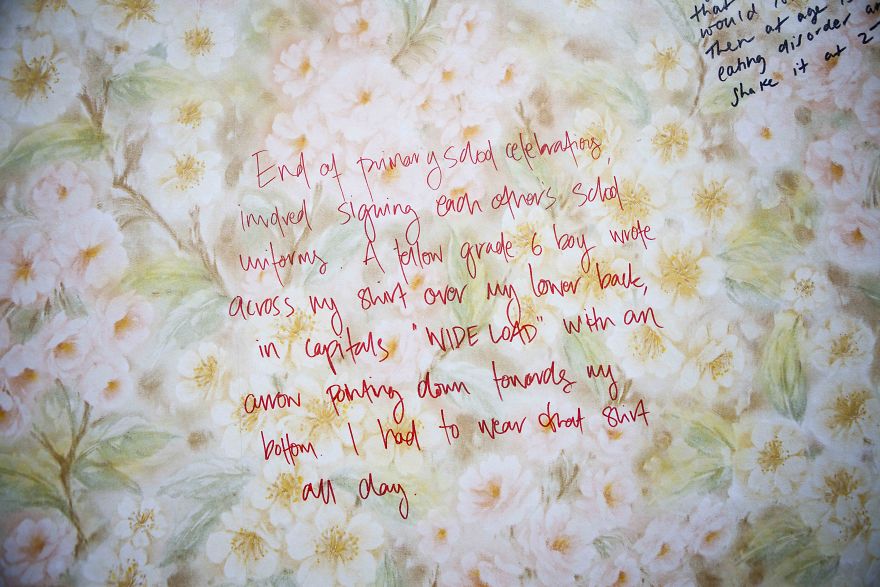 that
would
Then at age
eating disorder
shake it at 2
End of primary school celebrations,
involved signing each other's school
uniforms. A fellow grade 6 boy wrote
across my shirt over my lower back,
in capitals "WIDE LOAD" with an
arrow pointing down towards my
bottom. I had to wear that shirt
all day.